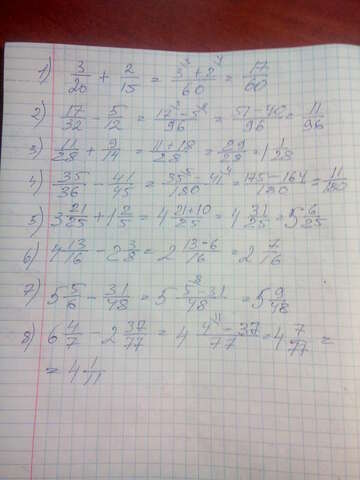 1) 3/20 + 2/15 = (3^3 + 2^4)/60 = 17/60
2) 17/32 - 5/12 = (17^3 - 5^8)/96 = (51 - 40)/96 = 11/96
3) 11/28 + 9/14 = (11 + 18)/28 = 29/28 = 1 1/28
4) 35/36 - 41/45 = (35^5 - 41^4)/180 = (175 - 164)/180 = 11/180
5) 3 21/25 + 1 2/5 = 4 (21+10)/25 = 4 31/25 = 5 6/25
6) 4 13/16 - 2 3/8 = 2 (13-6)/16 = 2 7/16
7) 5 5/6 - 31/48 = 5 (5^8 - 31)/48 = 5 9/48
8) 6 4/7 - 2 37/77 = 4 (4^11 - 37)/77 = 4 7/77 =
= 4 1/11